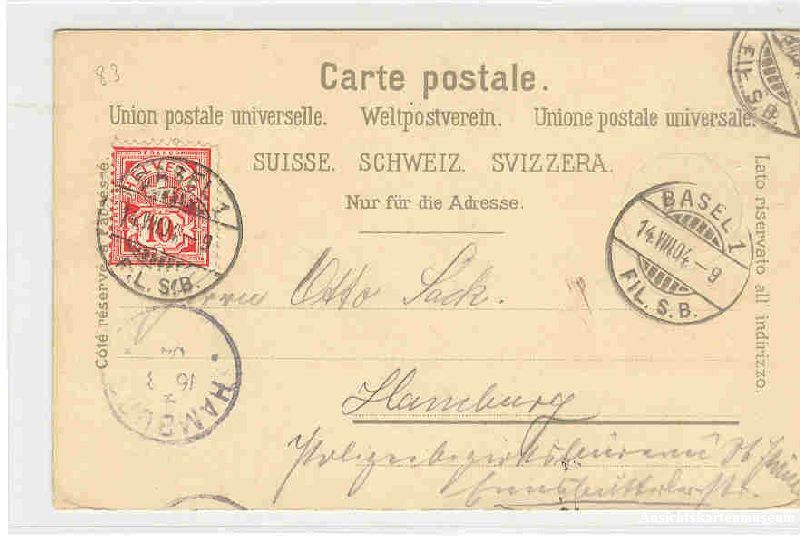 83
Carte postale.
Union postale universelle. Weltpostverein. Unione postale universale.
SUISSE. SCHWEIZ. SVIZZERA.
Nur für die Adresse.
Côté réservé à l'adresse.
Lato riservato all indirizzo.
HELVETIA
10
FIL. S.B.
BASEL 1
14.VIII.04.-9
FIL. S. B.
FIL. S. B.
Herrn Otto Sack.
Hamburg
Polizeibezirksbureau St
HAMBU
16
Ansichtskartenmuseum